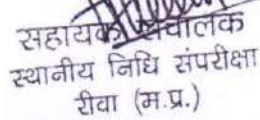 सहायक संचालक
स्थानीय निधि संपरीक्षा
रीवा (म.प्र.)